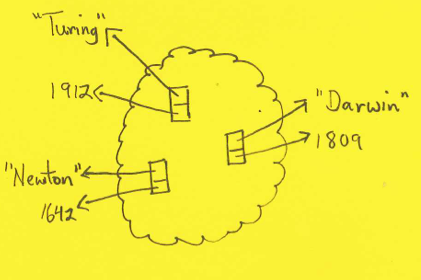 "Turing"
1912
"Darwin"
1809
"Newton"
1642